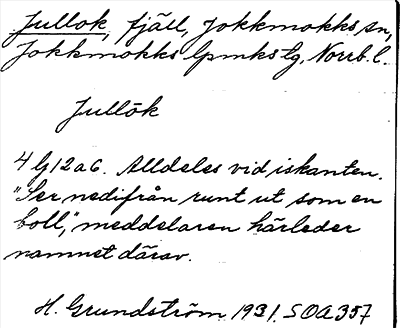 Jullok, fjäll, Jokkmokks sn,
Jokkmokks lpmkstg, Norrb. l.
Jullök
4 G12a6. Alldeles vid iskanten.
"Ser nedifrån runt ut som en
boll," meddelaren härleder
namnet därav.
H. Grundström 1931. SOA 357